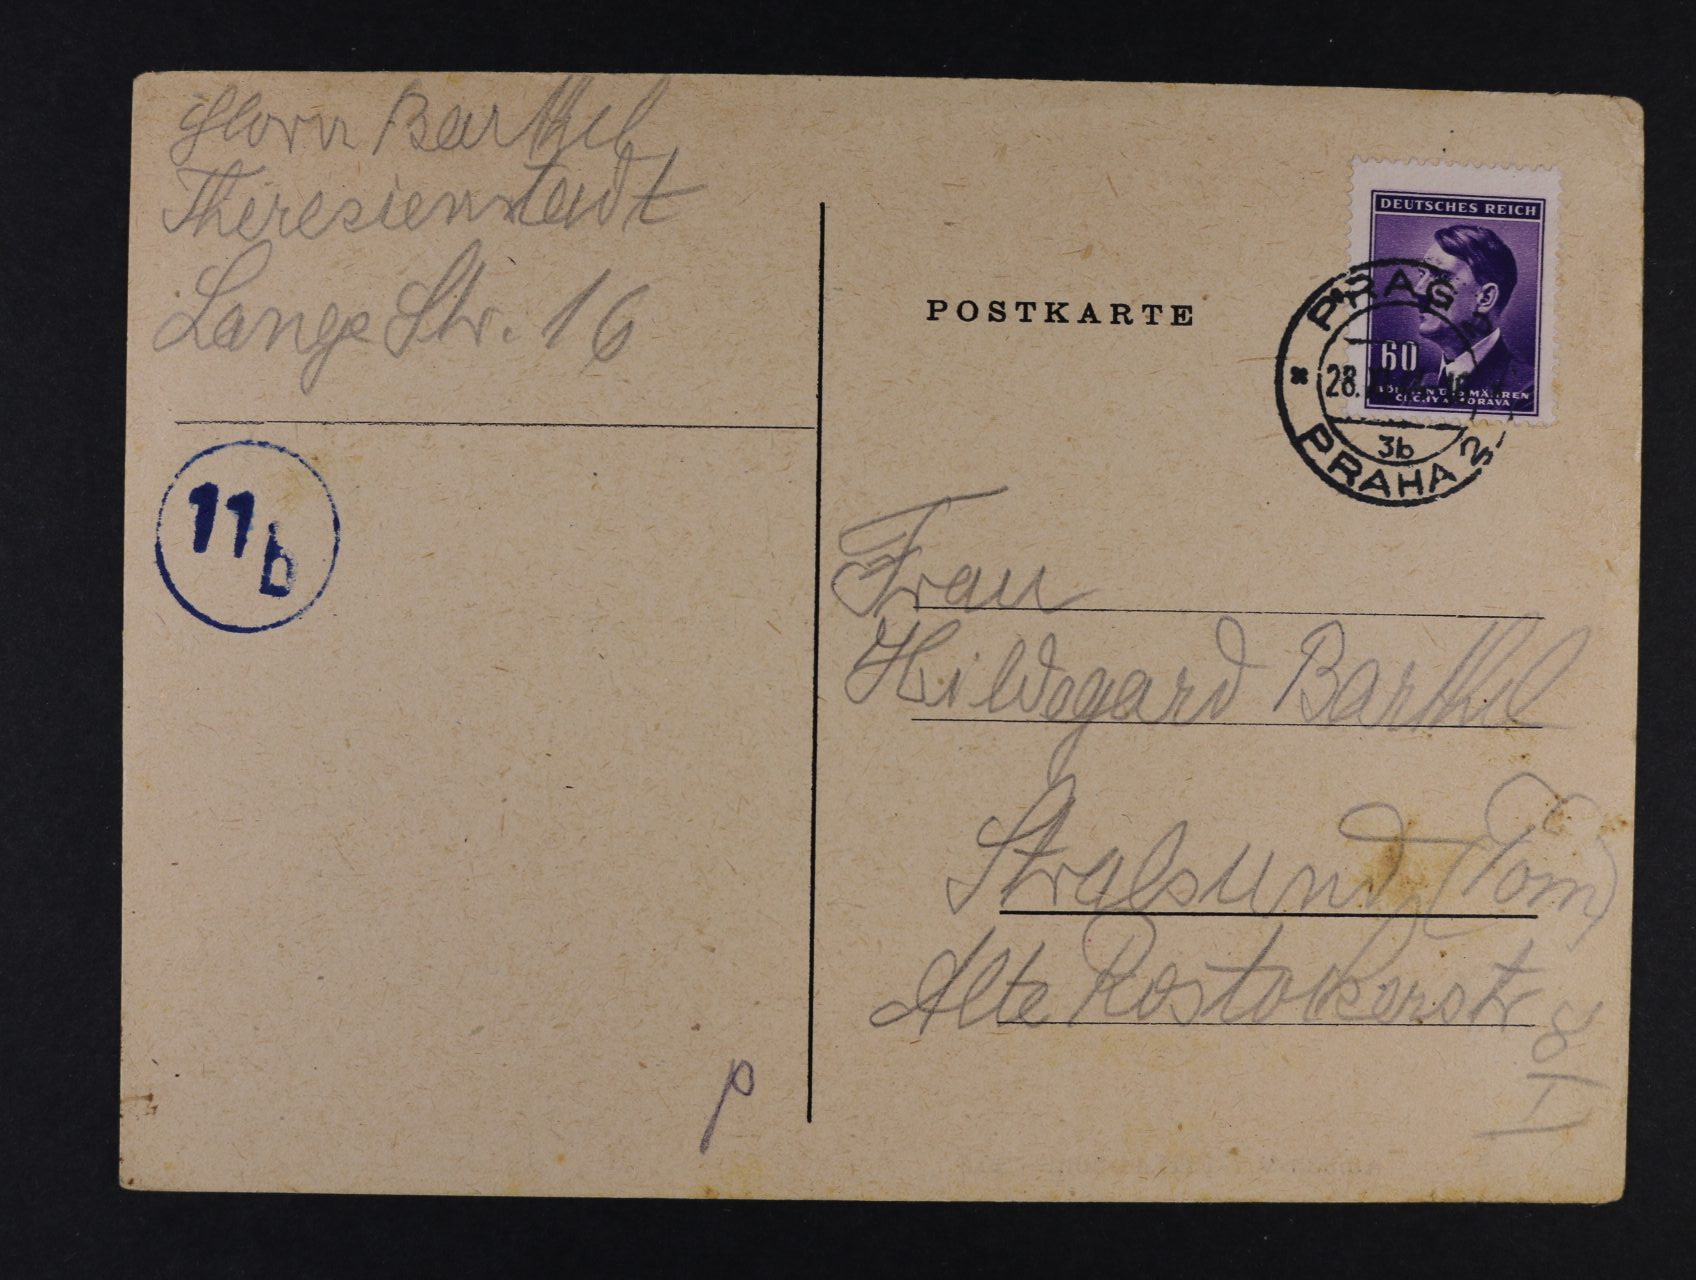 Horn Barthel
Theresienstadt
Lange Str. 16
POSTKARTE
DEUTSCHES REICH
60
BÖHMEN UND MÄHREN
ČECHY A MORAVA
PRAG 2
28. 16
3b
PRAHA 2
11b
Frau
Hildegard Barthel
Stralsund, (Pom)
Alte Rostockerstr 8
I
p